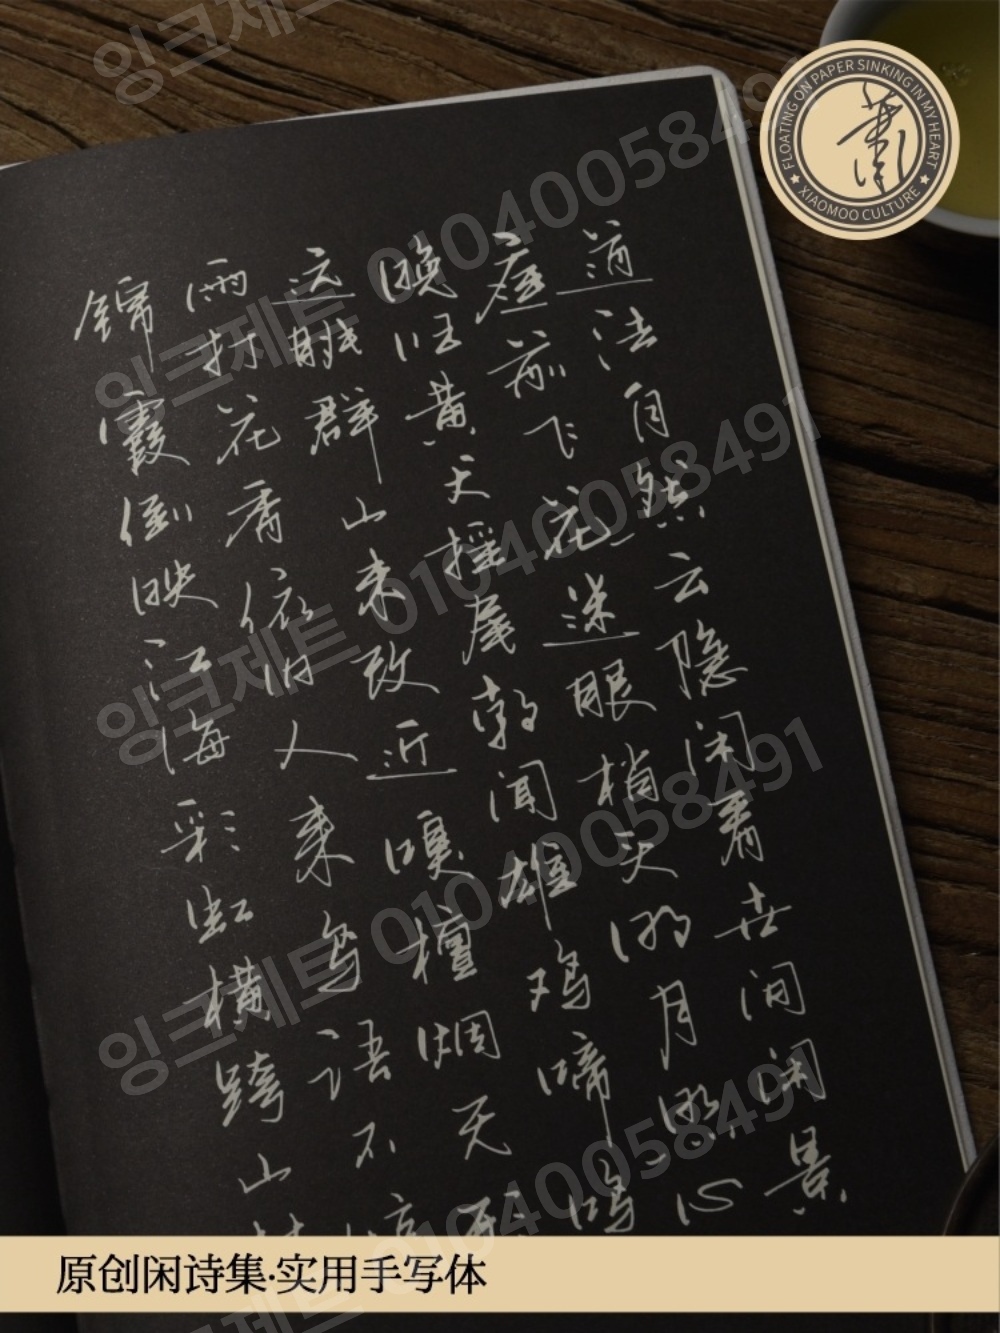 FLOATING ON PAPER SINKING IN MY HEART
XIAOMOO CULTURE
道法自然云隐闲看世间闲景
庭前飞花迷眼梢头明月照心
晚归黄犬摇尾朝闻雄鸡啼鸣
远眺群山来政近嗅檀烟天
雨打花香依旧人来鸟语不
锦霞倒映江海彩虹横跨山
原创闲诗集·实用手写体
잉크제트 01040058491
잉크제트 01040058491
잉크제트 01040058491
잉크제트 01040058491